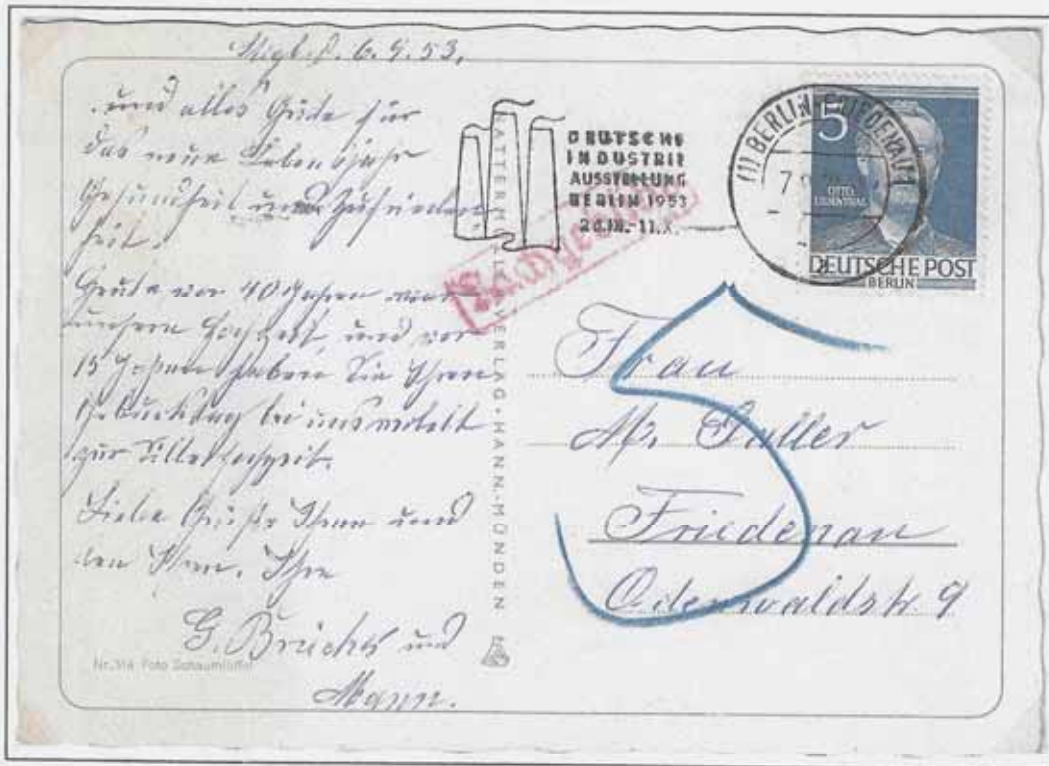 6.9.53.
und alles Gute für
das neue Lebensjahr
Gesundheit und Zufrieden
heit.
Heute vor 40 Jahren war
unsere Hochzeit, und vor
15 Jahren haben Sie Ihren
Geburtstag bei uns verlebt
zur Silberhochzeit.
Liebe Grüße Ihnen und
Ihre
G. Brüches und
Mann.
Nr. 314 Foto Schaumlöffel
VERLAG · HANN.-MÜNDEN
DEUTSCHE
INDUSTRIE
AUSSTELLUNG
BERLIN 1953
26.IX.-11.X.
(1) BERLIN-FRIEDENAU 1
5
OTTO
LILIENTHAL
DEUTSCHE POST
BERLIN
Nachgebühr
5
Frau
Friedenau
Odenwaldstr. 9